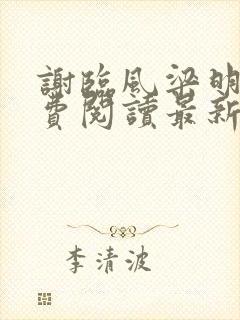 謝臨風梁明
費閱讀最新
李清波